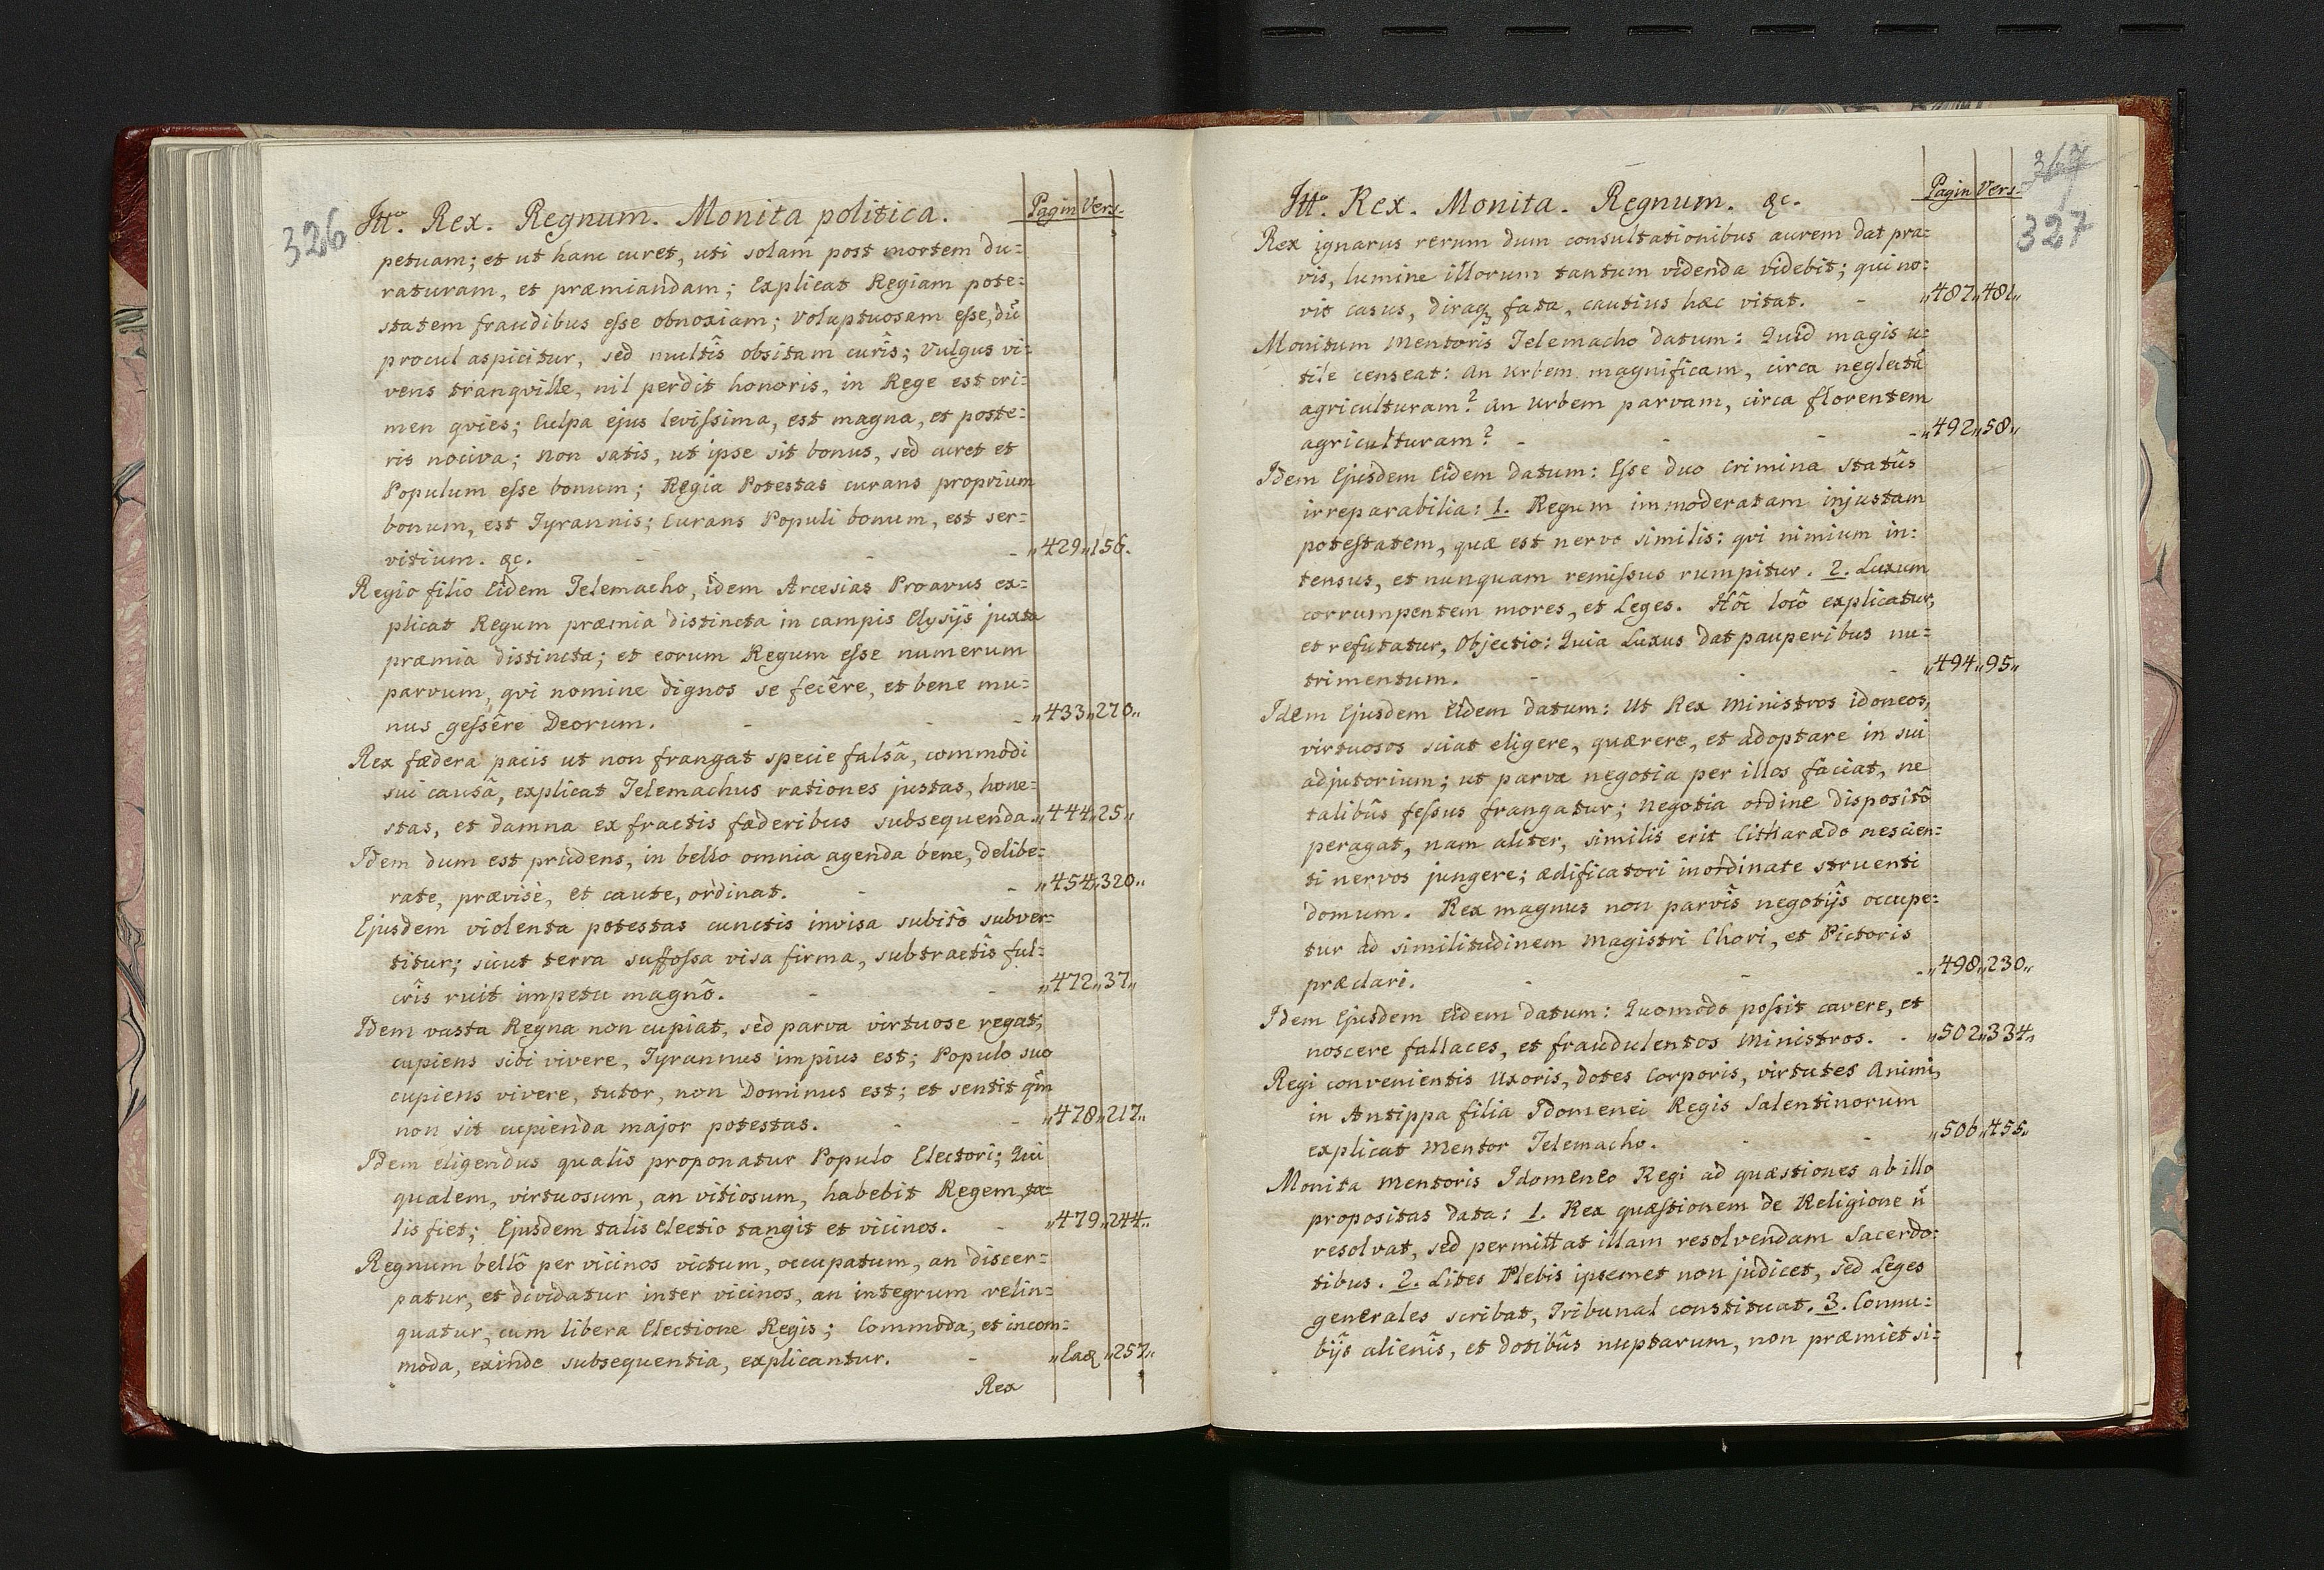 326
Itto. Rex. Regnum. Monita politica. Pagin Vers.
petuam; et ut hanc curet, uti solam post mortem du=
raturam, et præmiandam; Explicat Regiam pote=
statem fraudibus esse obnoxiam; Voluptuosam esse, dū
procul aspicitur, sed multîs obsitam curîs; Vulgus vi=
vens tranqville, nil perdit honoris, in Rege est cri=
men qvies; Culpa ejus levissima, est magna, et poste=
ris nociva; Non satis, ut ipse sit bonus, sed curet et
Populum esse bonum; Regia Potestas curans proprium
bonum, est Tyrannis; Curans Populi bonum, est ser=
vitium. &c. - - - „429„156.
Regio filio Eidem Telemacho, idem Arcesias Proavus ex=
plicat Regum præmia distincta in campis Elysijs juxta
præmia distincta; et eorum Regum esse numerum
parvum, qvi nomine dignos se fecêre, et bene mu=
nus gessêre Deorum. - - - „433„270„
Rex fædera pacis ut non frangat specie falsâ, commodi
sui causâ, explicat Telemachus rationes justas, hone=
stas, et damna ex fractis fæderibus subsequenda. „444„25„
Idem dum est prudens, in bello omnia agenda bene, delibe=
rate, prævisè, et caute, ordinat. - - „454„320„
Ejusdem violenta potestas cunctis invisa subitô subver=
titur; sicut terra suffossa visa firma, subtractîs ful=
crîs ruit impetu magnô. - - „472„37„
Idem vasta Regna non cupiat, sed parva virtuose regat;
cupiens sibi vivere, Tyrannus impius est; Populo suo
cupiens vivere, tutor, non Dominus est; et sentit qm̄
non sit cupienda major potestas. - - „478„217„
Idem eligendus qualis proponatur Populo Electori; Qui
qualem, virtuosum, an vitiosum, habebit Regem, ta=
lis fiet; Ejusdem talis Electio tangit et vicinos. - „479„244„
Regnum bellô per vicinos victum, occupatum, an discer=
patur, et dividatur inter vicinos, an integrum relin=
quatur, cum libera Electione Regis; Commoda, et incom=
moda, exinde subsequentia, explicantur. - „Eaq„257„
Rex
367
327
Itto. Rex. Monita. Regnum. &c. Pagin Vers.
Rex ignarus rerum dum consultationibus aurem dat pra=
vis, lumine illorum tantum videnda videbit; qui no=
vit casus, diraq fata, cautius hæc vitat. - „487„481„
Monitum Mentoris Telemacho datum: Quid magis u=
tile censeat: An Urbem magnificam, circa neglectā
agriculturam? An Urbem parvam, circa florentem
agriculturam? - - - - „492„58„
Idem Ejusdem Eidem datum: Esse duo Crimina Statûs
irreparabilia: 1. Regum immoderatam injustam
potestatem, quæ est nervo similis: qvi nimium in=
tensus, et nunquam remissus rumpitur. 2. Luxum
corrumpentem mores, et Leges. Hôc locô explicatur,
et refutatur, Objectio: Quia Luxus dat pauperibus nu=
trimentum. - - - „494„95„
Idem Ejusdem Eidem datum: Ut Rex Ministros idoneos,
virtuosos sciat eligere, quærere, et adoptare in sui
adjutorium; ut parva negotia per illos faciat, ne
talibûs fessus frangatur; Negotia ordine dispositô
peragat, nam aliter, similis erit Citharædo nescien=
ti nervos jungere; ædificatori inordinate struenti
domum. Rex magnus non parvîs negotijs occupe=
tur ad similitudinem Magistri Chori, et Pictoris
præclari. - - - „498„230„
Idem Ejusdem Eidem datum: Quomodo possit cavere, et
noscere fallaces, et fraudulentos Ministros. - „502„334„
Regi convenientis Uxoris, dotes Corporis, virtutes Animi,
in Antippa filia Idomenei Regis Salentinorum
explicat Mentor Telemacho. - - „506„455„
Monita Mentoris Idomeneo Regi ad quæstiones ab illo
propositas data: 1. Rex quæstionem de Religione n̄
resolvat, sed permittat illam resolvendam Sacerdo=
tibus. 2. Lites Plebis ipsemet non judicet, sed Leges
generales scribat, Tribunal constituat. 3. Connu=
bijs alienîs, et dotibûs nuptarum, non præmiet si=